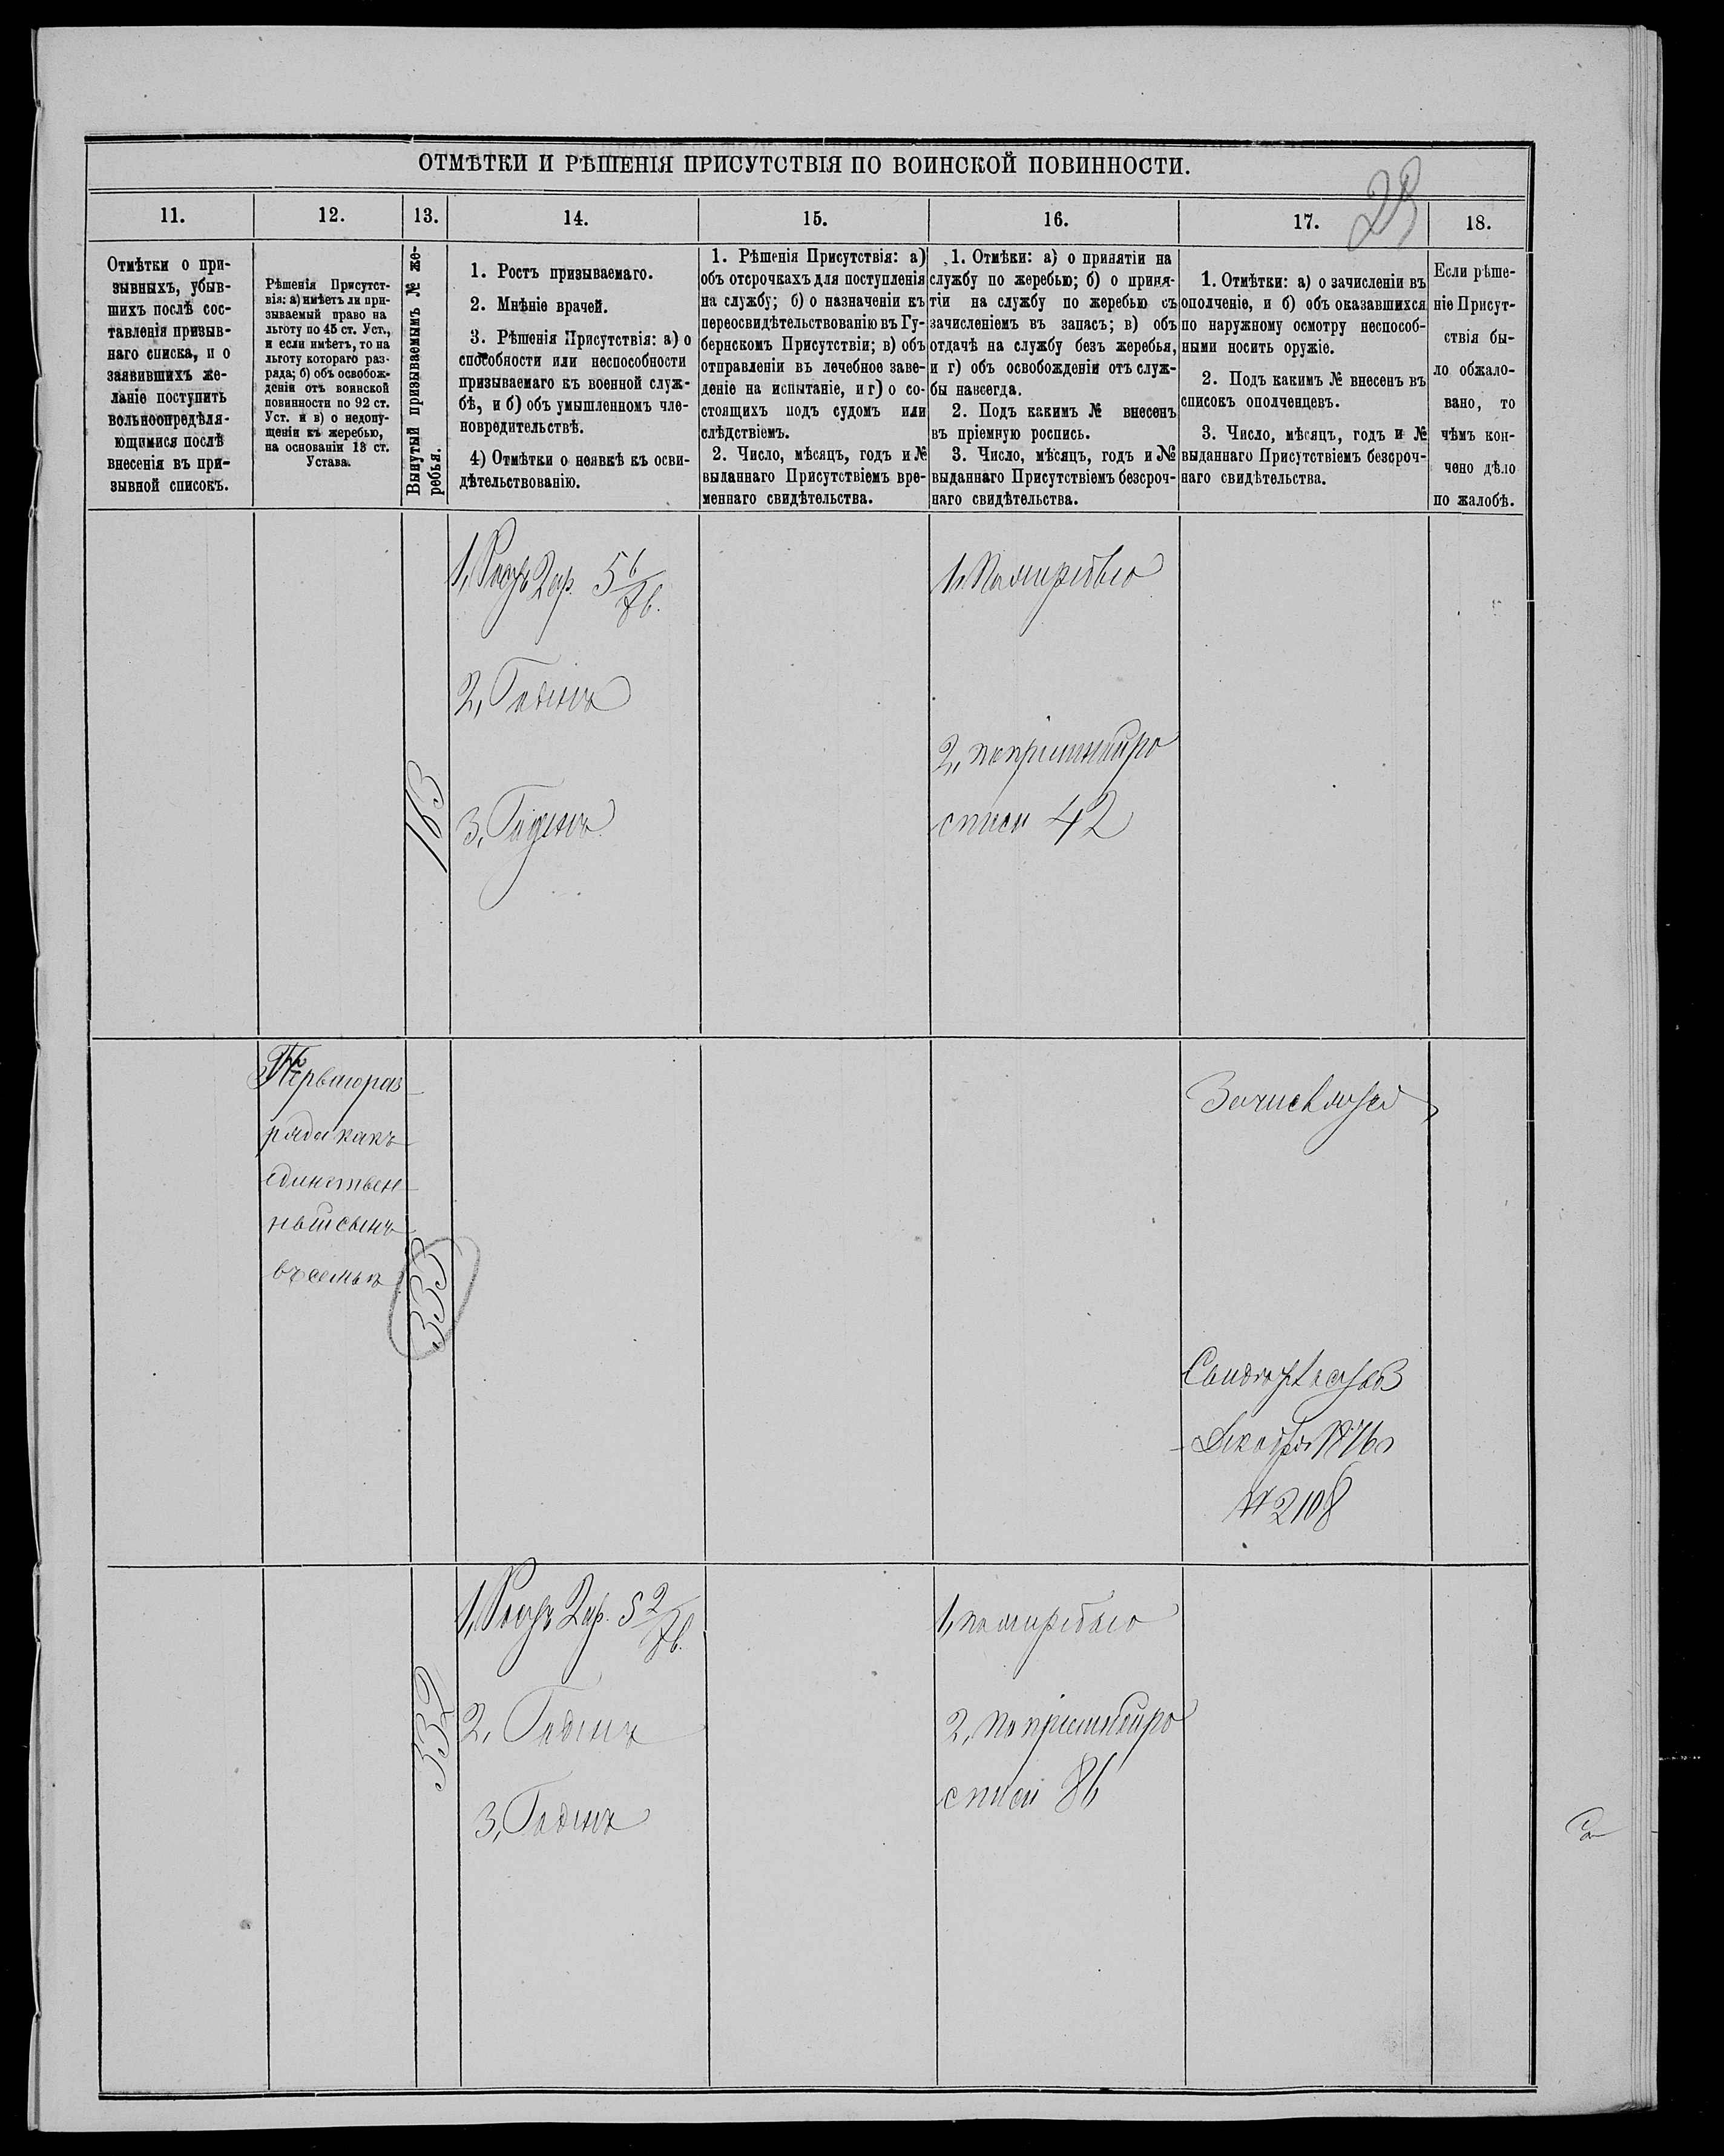 23
ОТМѢТКИ И РѢШЕНІЯ ПРИСУТСТВІЯ ПО ВОИНСКОЙ ПОВИННОСТИ.
11.
12.
13.
14.
15.
16.
17.
18.
Отмѣтки о при-
зывныхъ, убыв-
шихъ послѣ сос-
тавленія призыв-
наго списка, и о
заявившихъ же-
ланіе поступить
вольноопредѣля-
ющимися послѣ
внесенія въ при-
зывной списокъ.
Рѣшенія Присутст-
вія: а) имѣетъ ли при-
зываемый право на
льготу по 45 ст. Уст.,
и если имѣетъ, то на
льготу котораго раз-
ряда; б) объ освобож-
деніи отъ воинской
повинности по 92 ст.
Уст. и в) о недопу-
щеніи къ жеребью,
на основаніи 13 ст.
Устава.
Вынутый призываемымъ № же-
ребья.
1. Ростъ призываемаго.
2. Мнѣніе врачей.
3. Рѣшенія Присутствія: а) о
способности или неспособности
призываемаго къ военной служ-
бѣ, и б) объ умышленномъ чле-
новредительствѣ.
4) Отмѣтки о неявкѣ къ осви-
дѣтельствованію.
1. Рѣшенія Присутствія: а)
объ отсрочкахъ для поступленія
на службу; б) о назначеніи къ
переосвидѣтельствованію въ Гу-
бернскомъ Присутствіи; в) объ
отправленіи въ лечебное заве-
деніе на испытаніе, и г) о со-
стоящихъ подъ судомъ или
слѣдствіемъ.
2. Число, мѣсяцъ, годъ и №
выданнаго Присутствіемъ вре-
меннаго свидѣтельства.
1. Отмѣки: а) о принятіи на
службу по жеребью; б) о приня-
тіи на службу по жеребью съ
зачисленіемъ въ запасъ; в) объ
отдачѣ на службу безъ жеребья,
и г) объ освобожденіи отъ служ-
бы навсегда.
2. Подъ какимъ № внесенъ
въ пріемную роспись.
3. Число, мѣсяцъ, годъ и №
выданнаго Присутствіемъ безсроч-
наго свидѣтельства.
1. Отмѣтки: а) о зачисленіи въ
ополченіе, и б) объ оказавшихся
по наружному осмотру неспособ-
ными носить оружіе.
2. Подъ какимъ № внесенъ въ
списокъ ополченцевъ.
3. Число, мѣсяцъ, годъ и №
выданнаго Присутствіемъ безсроч-
наго свидѣтельства.
Если рѣше-
ніе Присут-
ствія бы-
ло обжало-
вано, то
чѣмъ кон-
чено дѣло
по жалобѣ.
163
1, Ростъ 2 ар. 5 6/8 в.
2, Годенъ
3, Годенъ
1, По жеребью
2, по пріемной ро
списи 42
Перваго раз
ряда какъ
единствен
ный сынъ
въ семьѣ
333
Зачисляется
Свидѣтельство 3
Декабря 1876
№ 2108
332
1, Ростъ 2 ар. 5 2/8 в.
2, Годенъ
3, Годенъ
1, по жеребью
2, по пріемной ро
списи 86